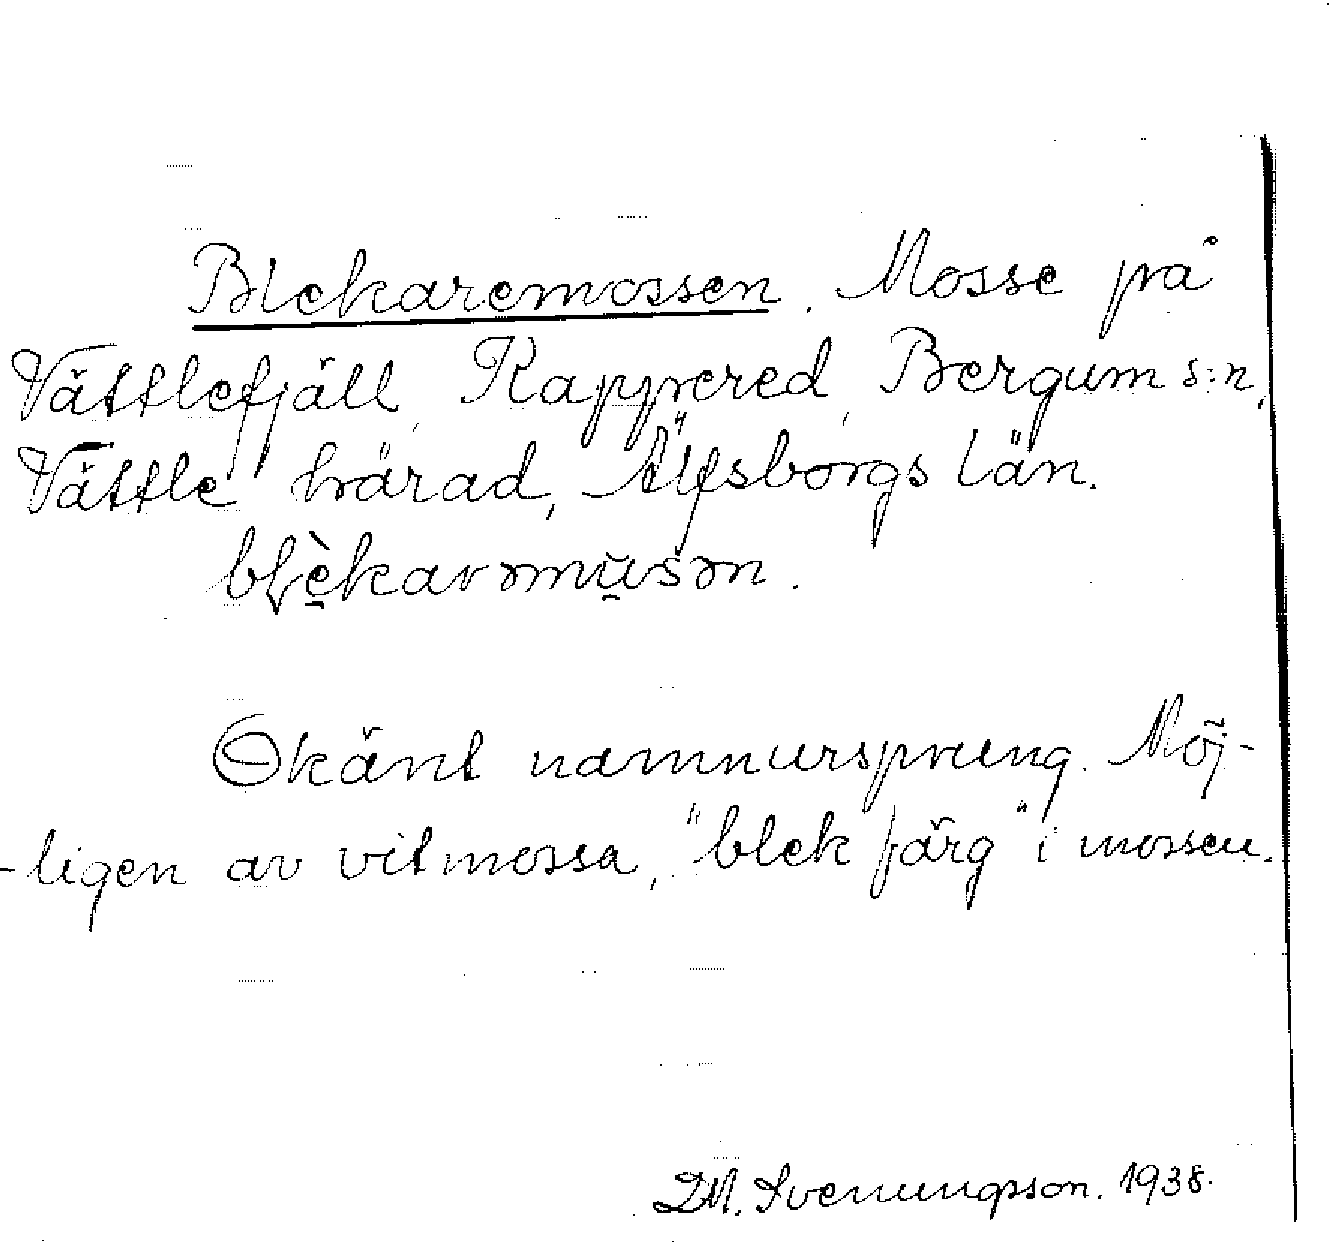 Blekaremossen. Mosse på
Vättlefjäll, Kappered, Bergum s:n,
Vättle härad, Älfsborgs län.
Okänt namnursprung. Möj-
-ligen av vitmossa, "blek färg" i mossen.
Svenungsson. 1938.